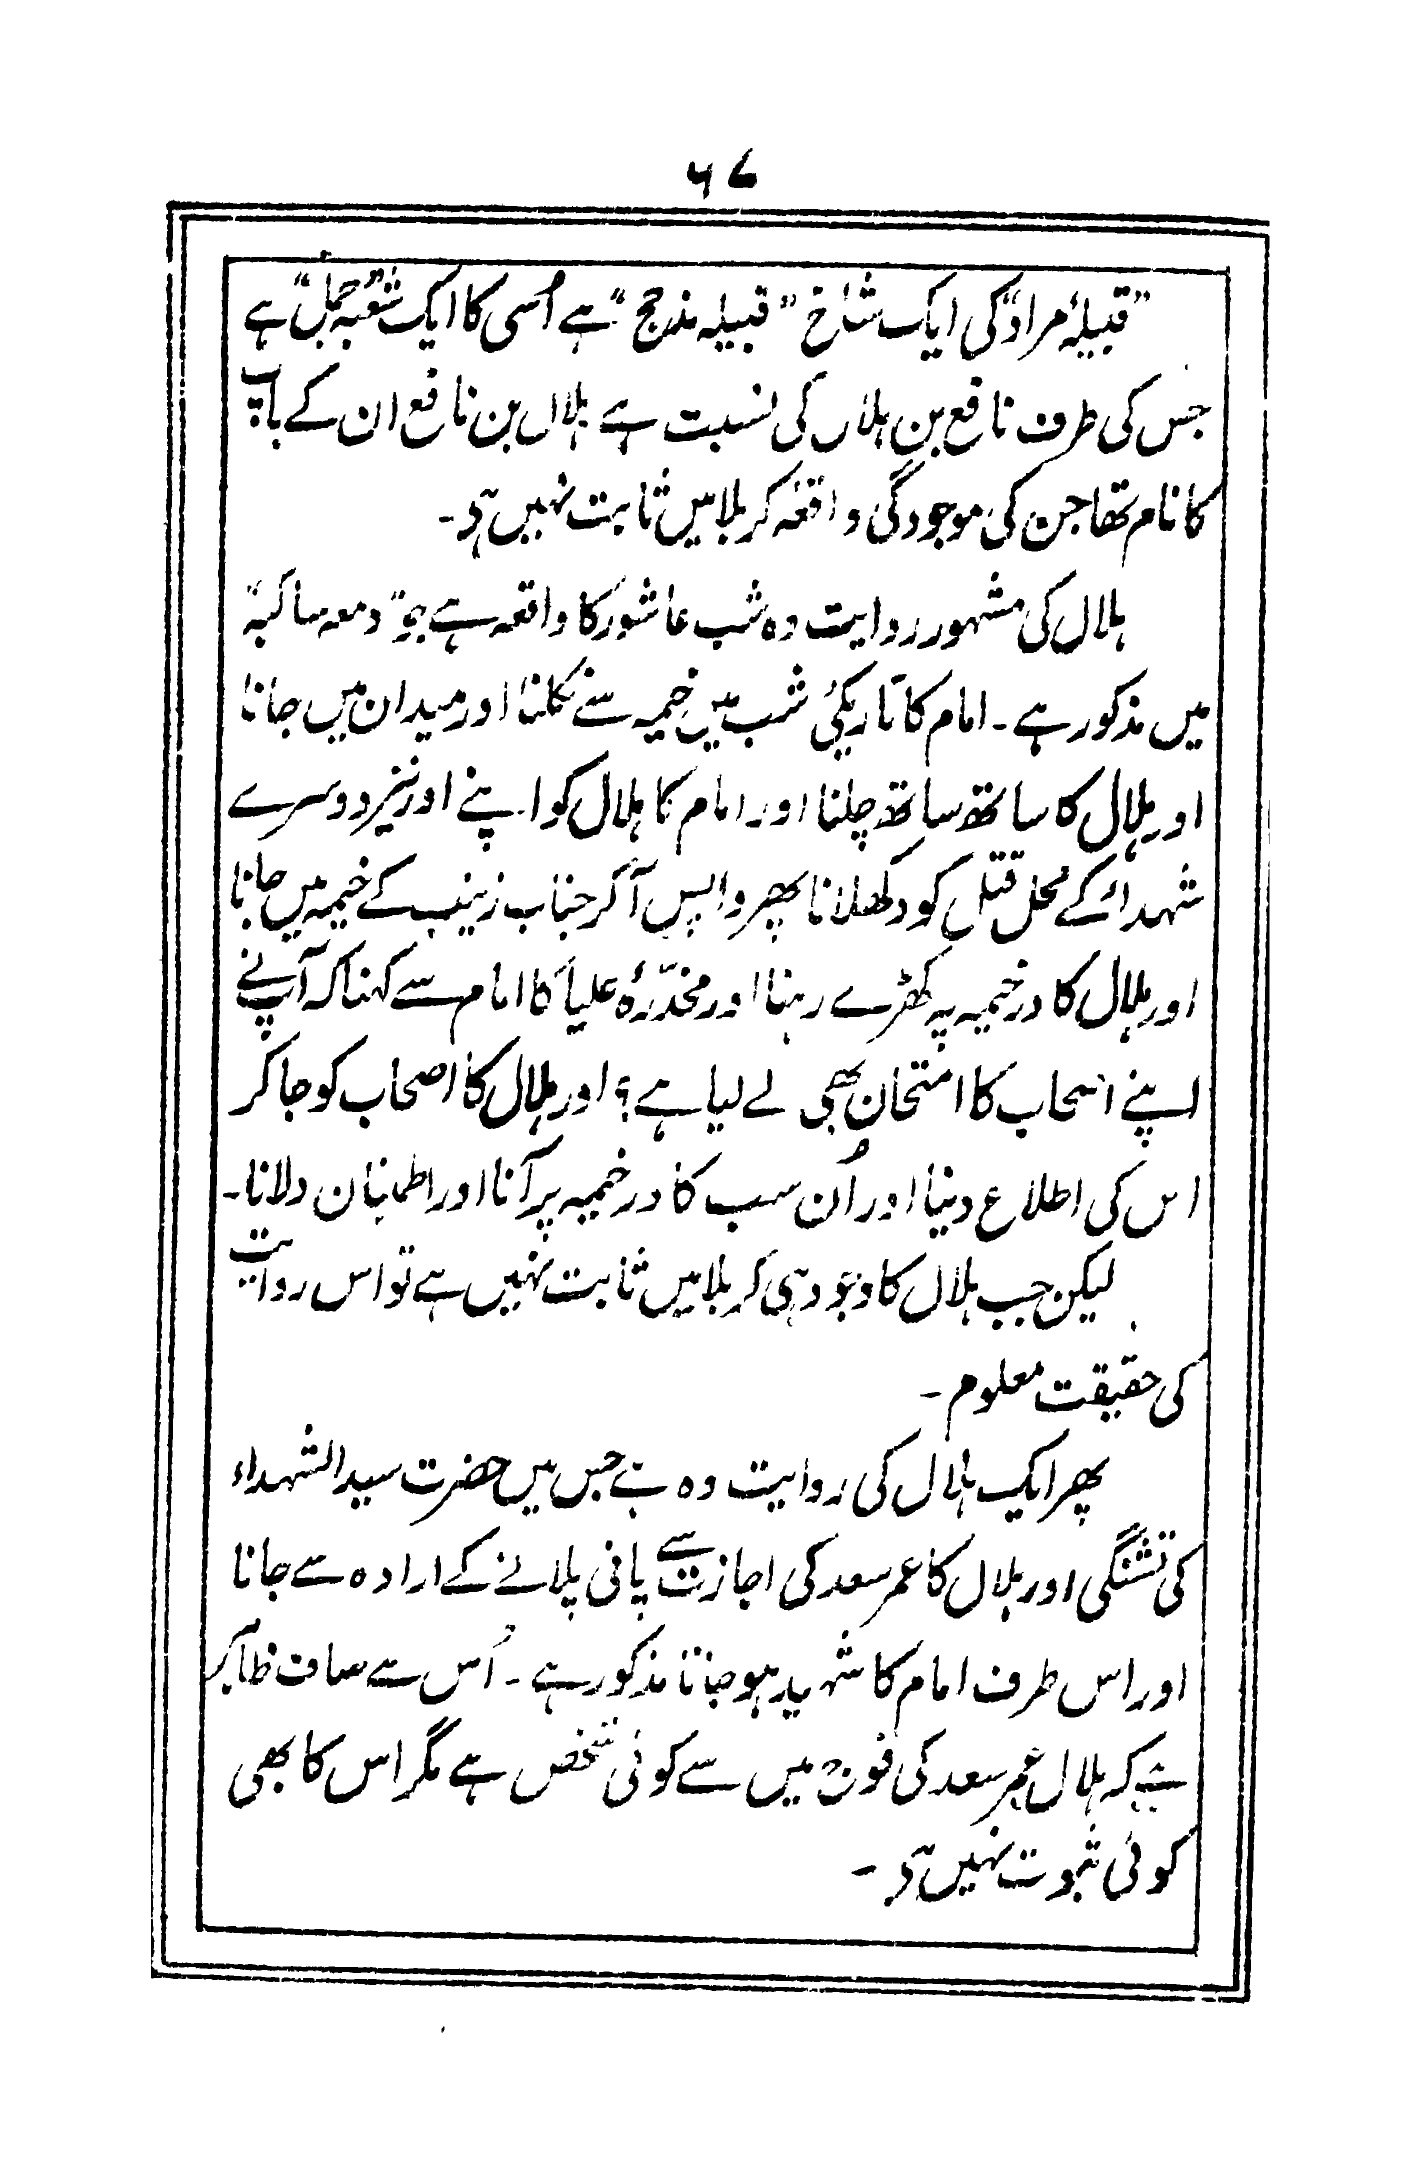 ۶۷
”قبیلۂ مراد“ کی ایک شاخ ”قبیلہ مذحج“ ہے اُسی کا ایک شعبہ ”جمل“ ہے
جس کی طرف نافع بن ہلال کی نسبت ہے ہلال بن نافع ان کے باپ
کا نام تھا جن کی موجودگی واقعہ کربلا میں ثابت نہیں ہے۔
ہلال کی مشہور روایت وہ شب عاشور کا واقعہ ہے جو ”دمعہ ساکبہ“
میں مذکور ہے۔ امام کا تاریکیٔ شب میں خیمہ سے نکلنا اور میدان میں جانا
اور ہلال کا ساتھ ساتھ چلنا اور امام کا ہلال کو اپنے اور نیز دوسرے
شہداء کے محل قتل کو دکھلانا پھر واپس آکر جناب زینب کے خیمہ میں جانا
اور ہلال کا در خیمہ پہ کھڑے رہنا اور مخدّرۂ علیا کا امام سے کہنا کہ آپ نے
اپنے اصحاب کا امتحان بھی لے لیا ہے؟ اور ہلال کا اصحاب کو جاکر
اس کی اطلاع دینا اور اُن سب کا در خیمہ پر آنا اور اطمینان دلانا۔
لیکن جب ہلال کا وجود ہی کربلا میں ثابت نہیں ہے تو اس روایت
کی حقیقت معلوم۔
پھر ایک ہلال کی روایت وہ ہے جس میں حضرت سید الشہداء
کی تشنگی اور ہلال کا عمر سعد کی اجازت سے پانی پلانے کے ارادہ سے جانا
اور اس طرف امام کا شہید ہو جانا مذکور ہے۔ اُس سے صاف ظاہر
ہے کہ ہلال عمر سعد کی فوج میں سے کوئی شخص ہے مگر اس کا بھی
کوئی ثبوت نہیں ہے۔